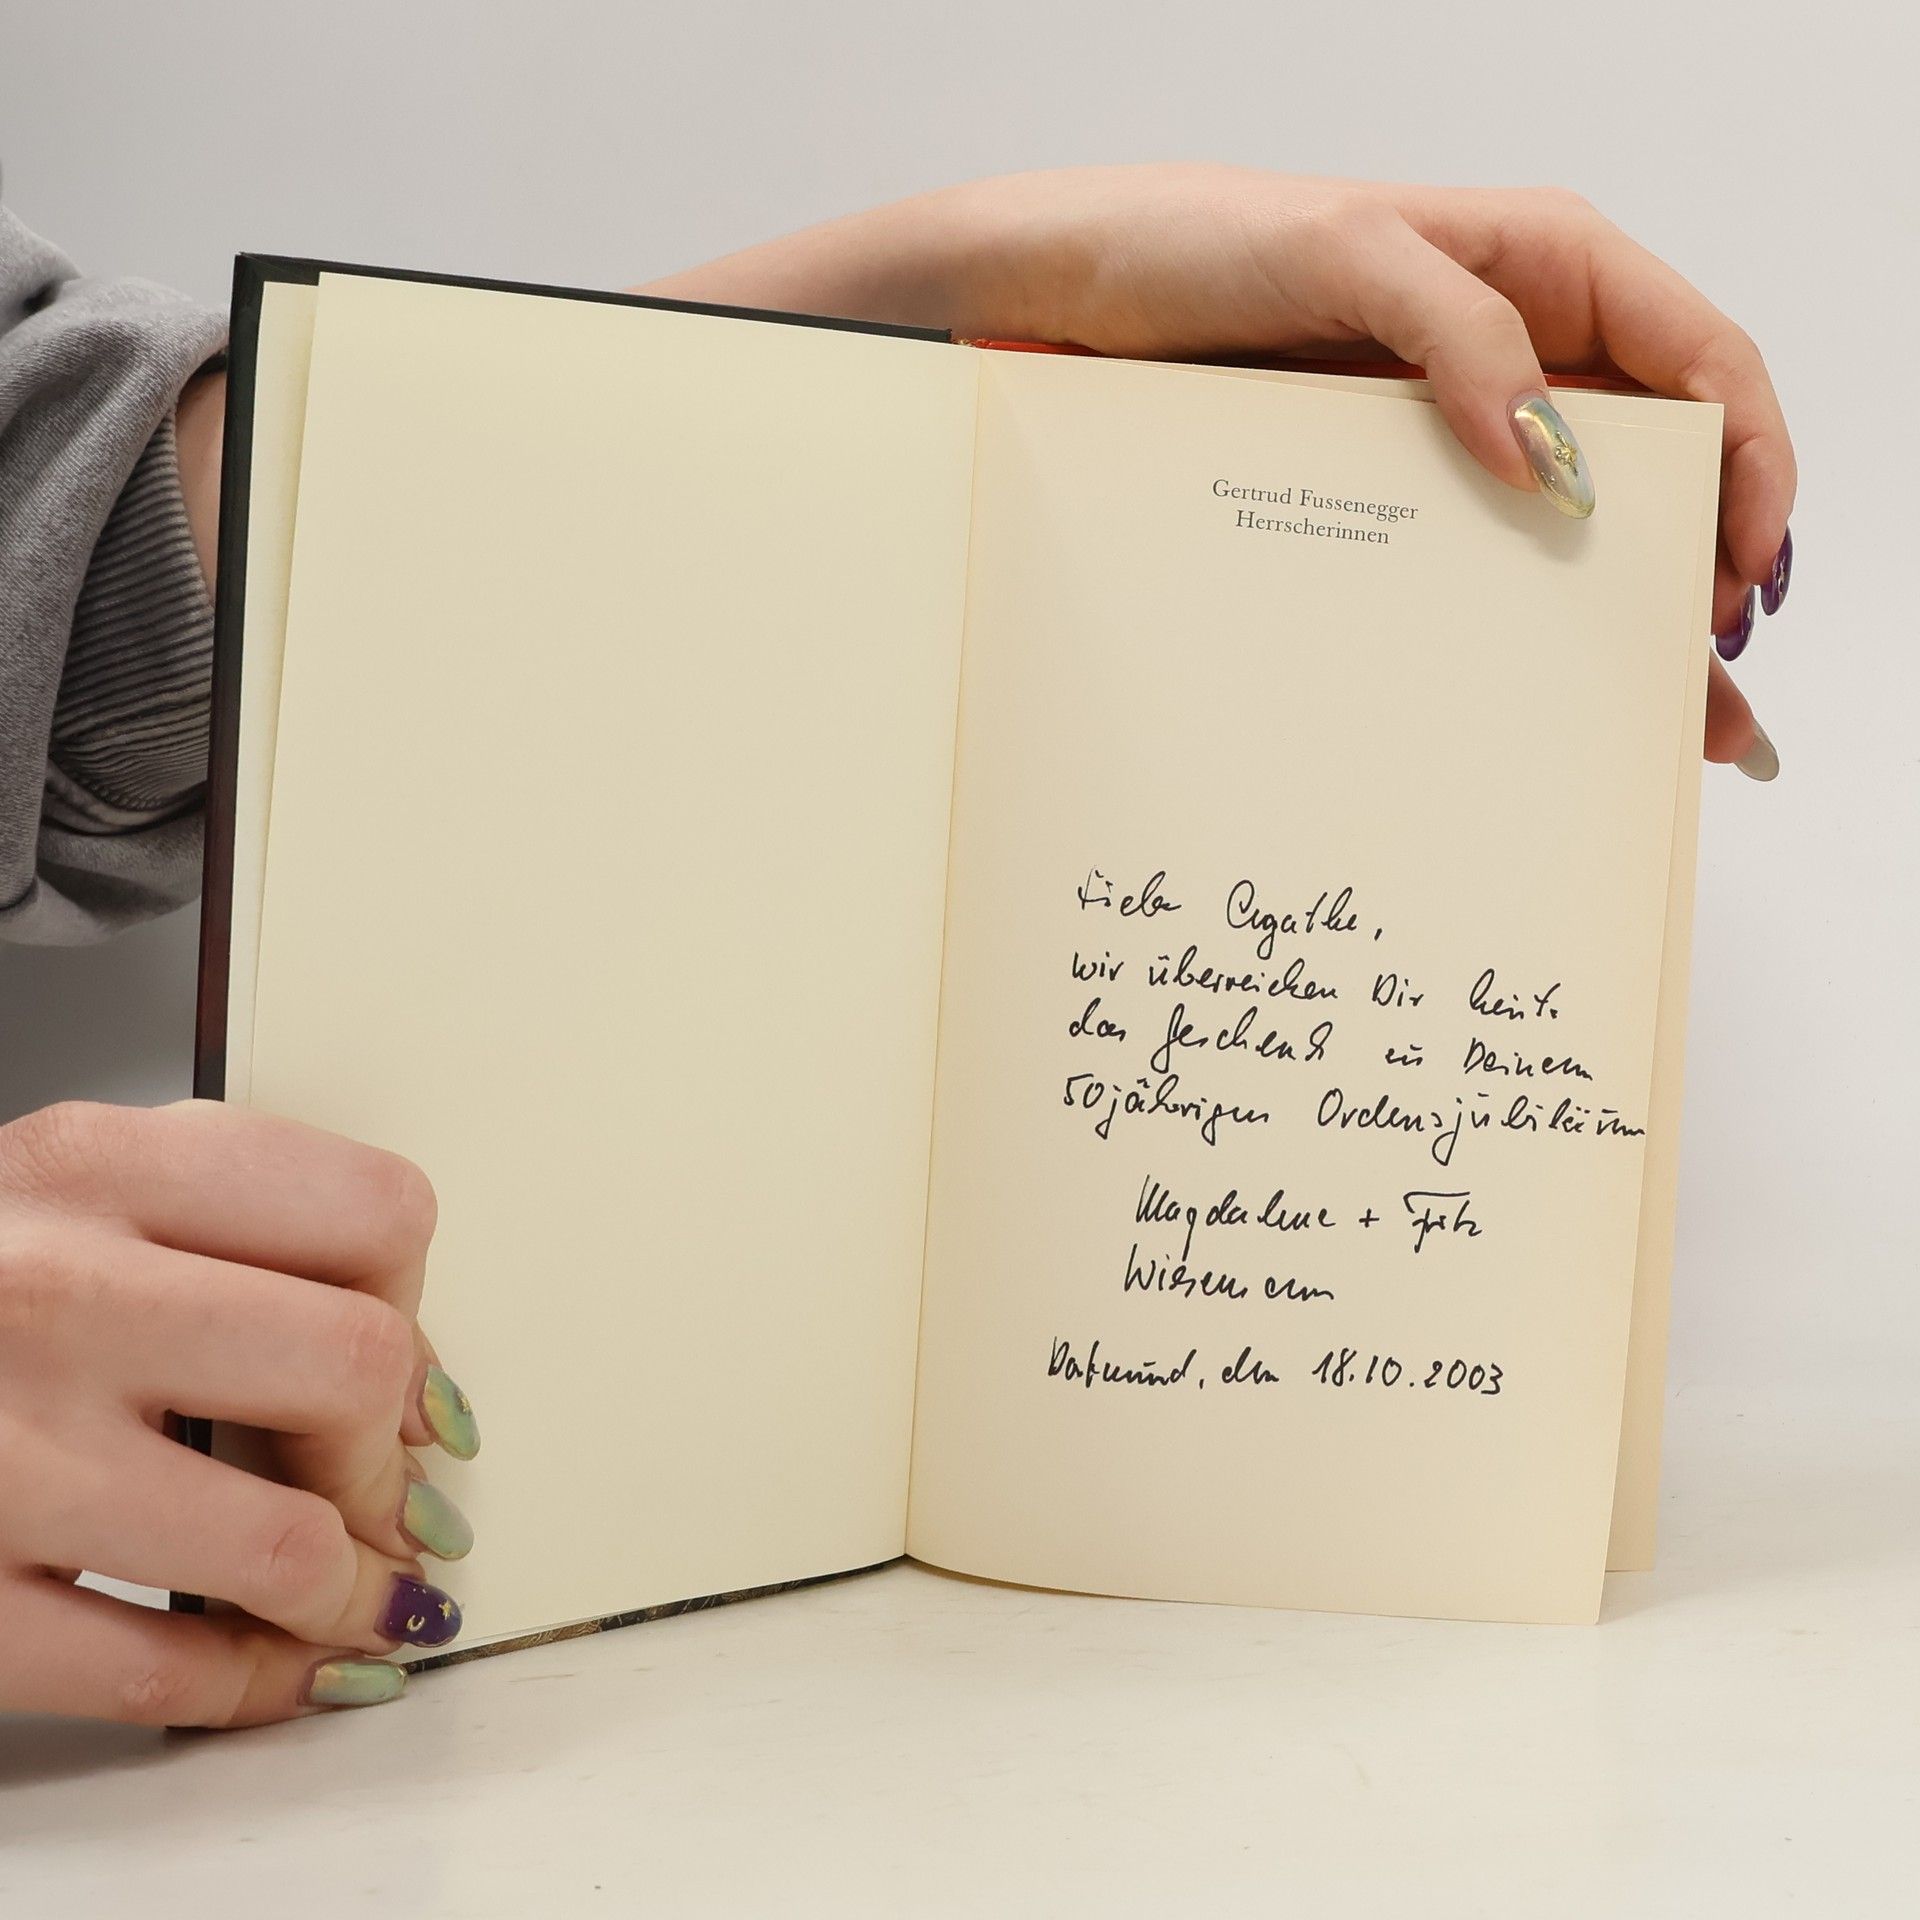 Gertrud Fussenegger
Herrscherinnen
Liebe Agathe,
wir überreichen Dir heute
das Geschenk zu Deinem
50jährigen Ordensjubiläum
Magdalene + Fritz
Wiesemann
Dortmund, den 18.10.2003